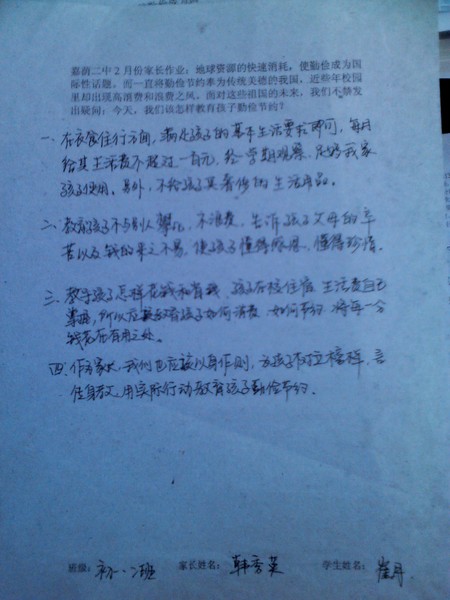 嘉荫二中2月份家长作业:地球资源的快速消耗,使勤俭成为国
际性话题。而一直将勤俭节约奉为传统美德的我国,近些年校园
里却出现高浪费和浪费之风,面对这些祖国的未来,我们不禁发
出疑问:今天,我们该怎样教育孩子勤俭节约?
一、在衣食住行方面,满足孩子的基本生活要求即可,每月
给其生活费不超过一百元,经学期观察,足够我家
孩子使用。另外,不给孩子买奢侈的生活用品。
二、教育孩子不与别人攀比,不浪费,告诉孩子父母的辛
苦以及钱的来之不易,使孩子懂得感恩、懂得珍惜。
三、教导孩子怎样花钱和省钱,孩子在校住宿,生活费自己
掌握,所以应教育孩子如何消费,如何节约,将每一分
钱花在有用之处。
四、作为家长,我们也应该以身作则,为孩子树立榜样,言
传身教,用实际行动教育孩子勤俭节约。
班级:初一.二班 家长姓名:韩秀英 学生姓名:崔丹